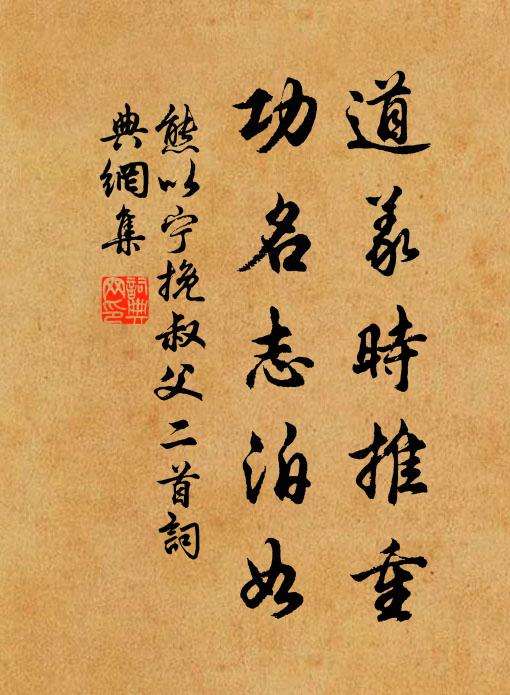 道義時推重
功名志泊如
熊以宁挽叔父二首詞
典網集
詞典
网印